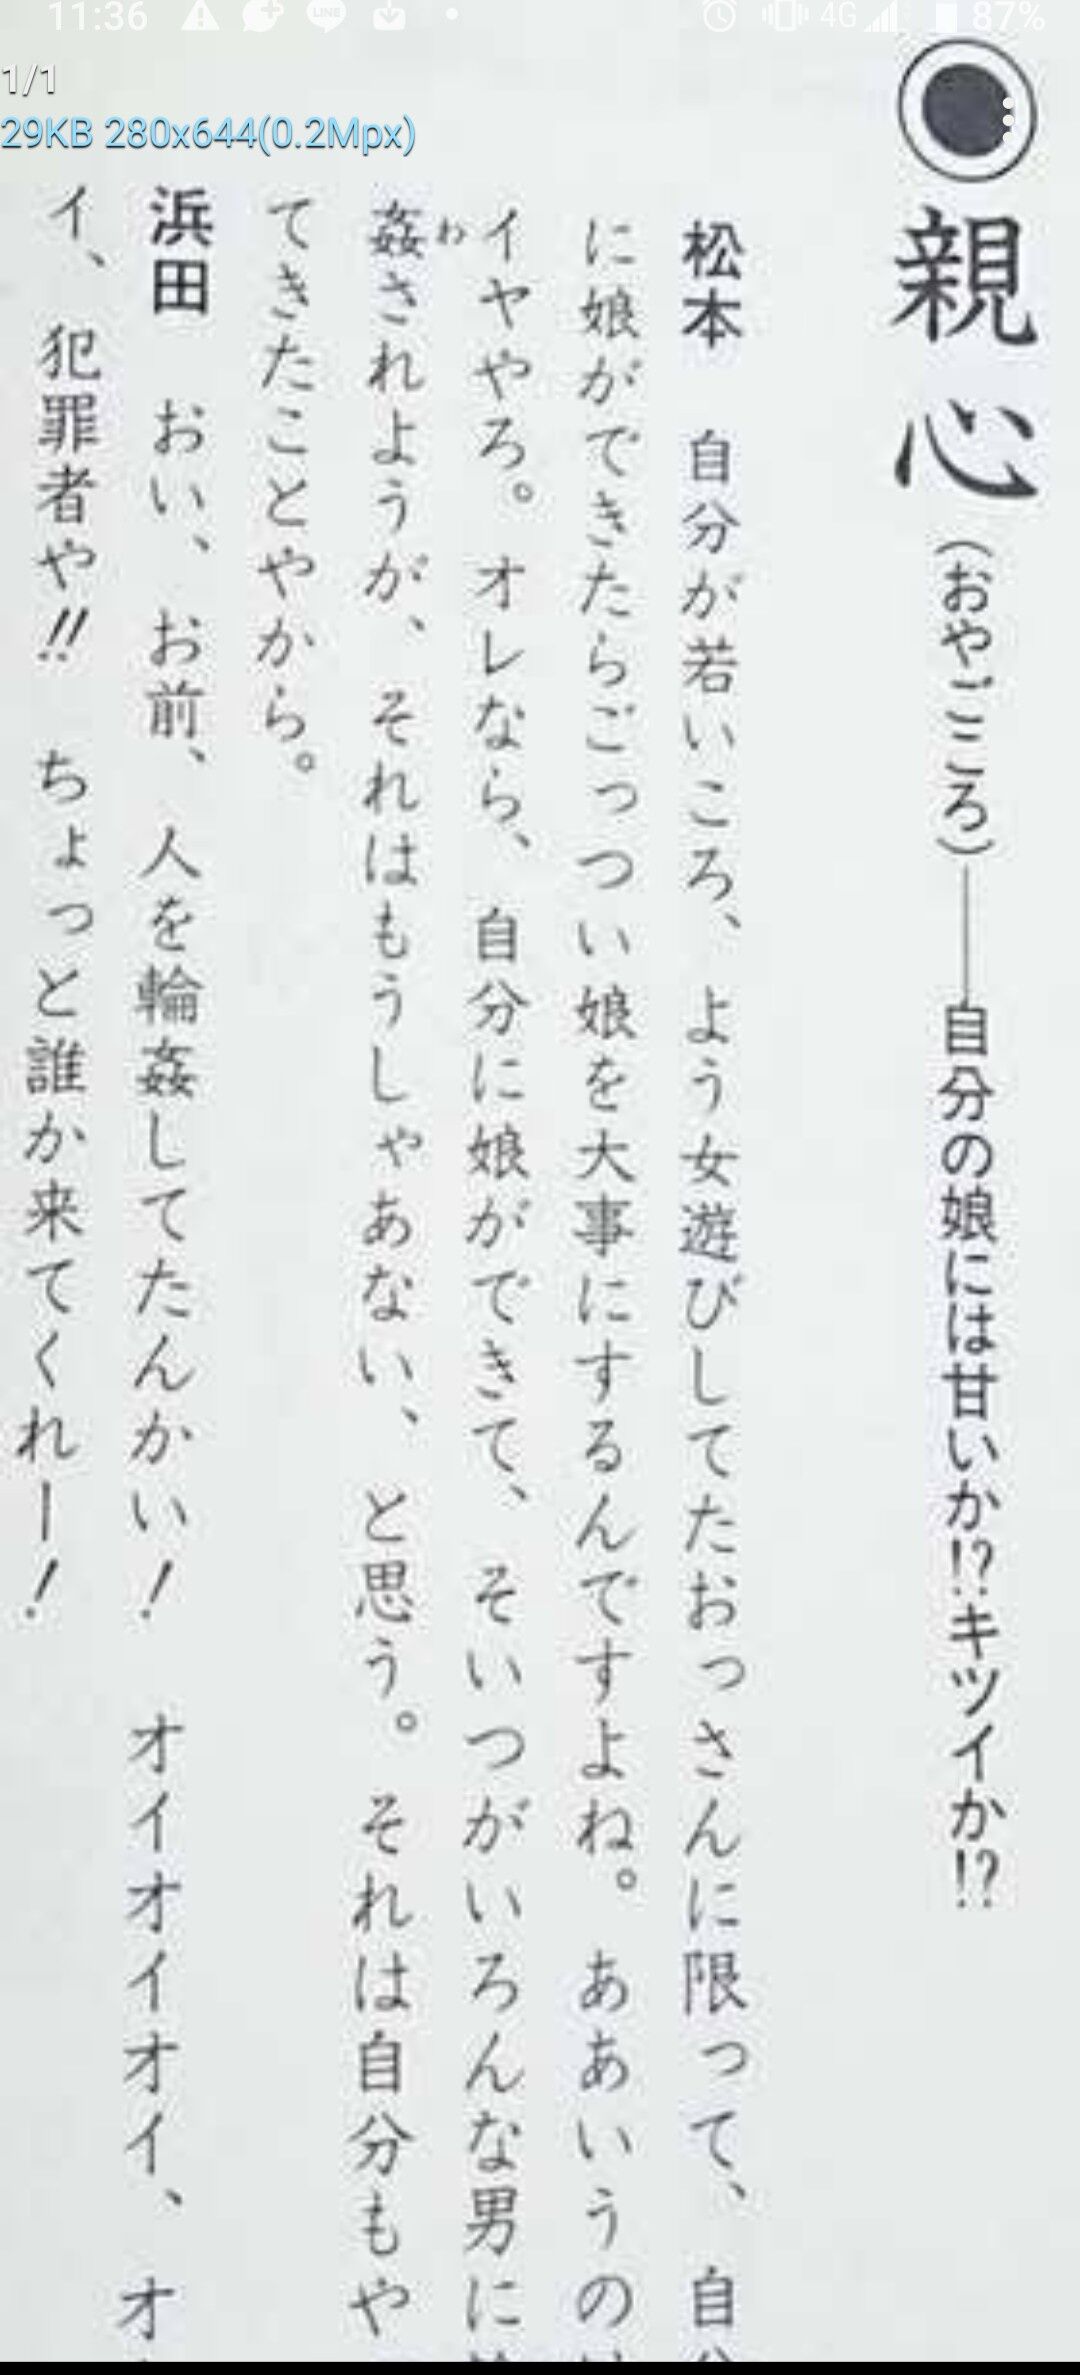 11:36 LINE 4G 87%
1/1
29KB 280x644(0.2Mpx)
親心(おやごころ)――自分の娘には甘いか!?キツイか!?
松本 自分が若いころ、よう女遊びしてたおっさんに限って、自分
に娘ができたらごっつい娘を大事にするんですよね。ああいうの
イヤやろ。オレなら、自分に娘ができて、そいつがいろんな男に
姦されようが、それはもうしゃあない、と思う。それは自分もや
てきたことやから。
浜田 おい、お前、人を輪姦してたんかい! オイオイオイ、オ
イ、犯罪者や!! ちょっと誰か来てくれー!